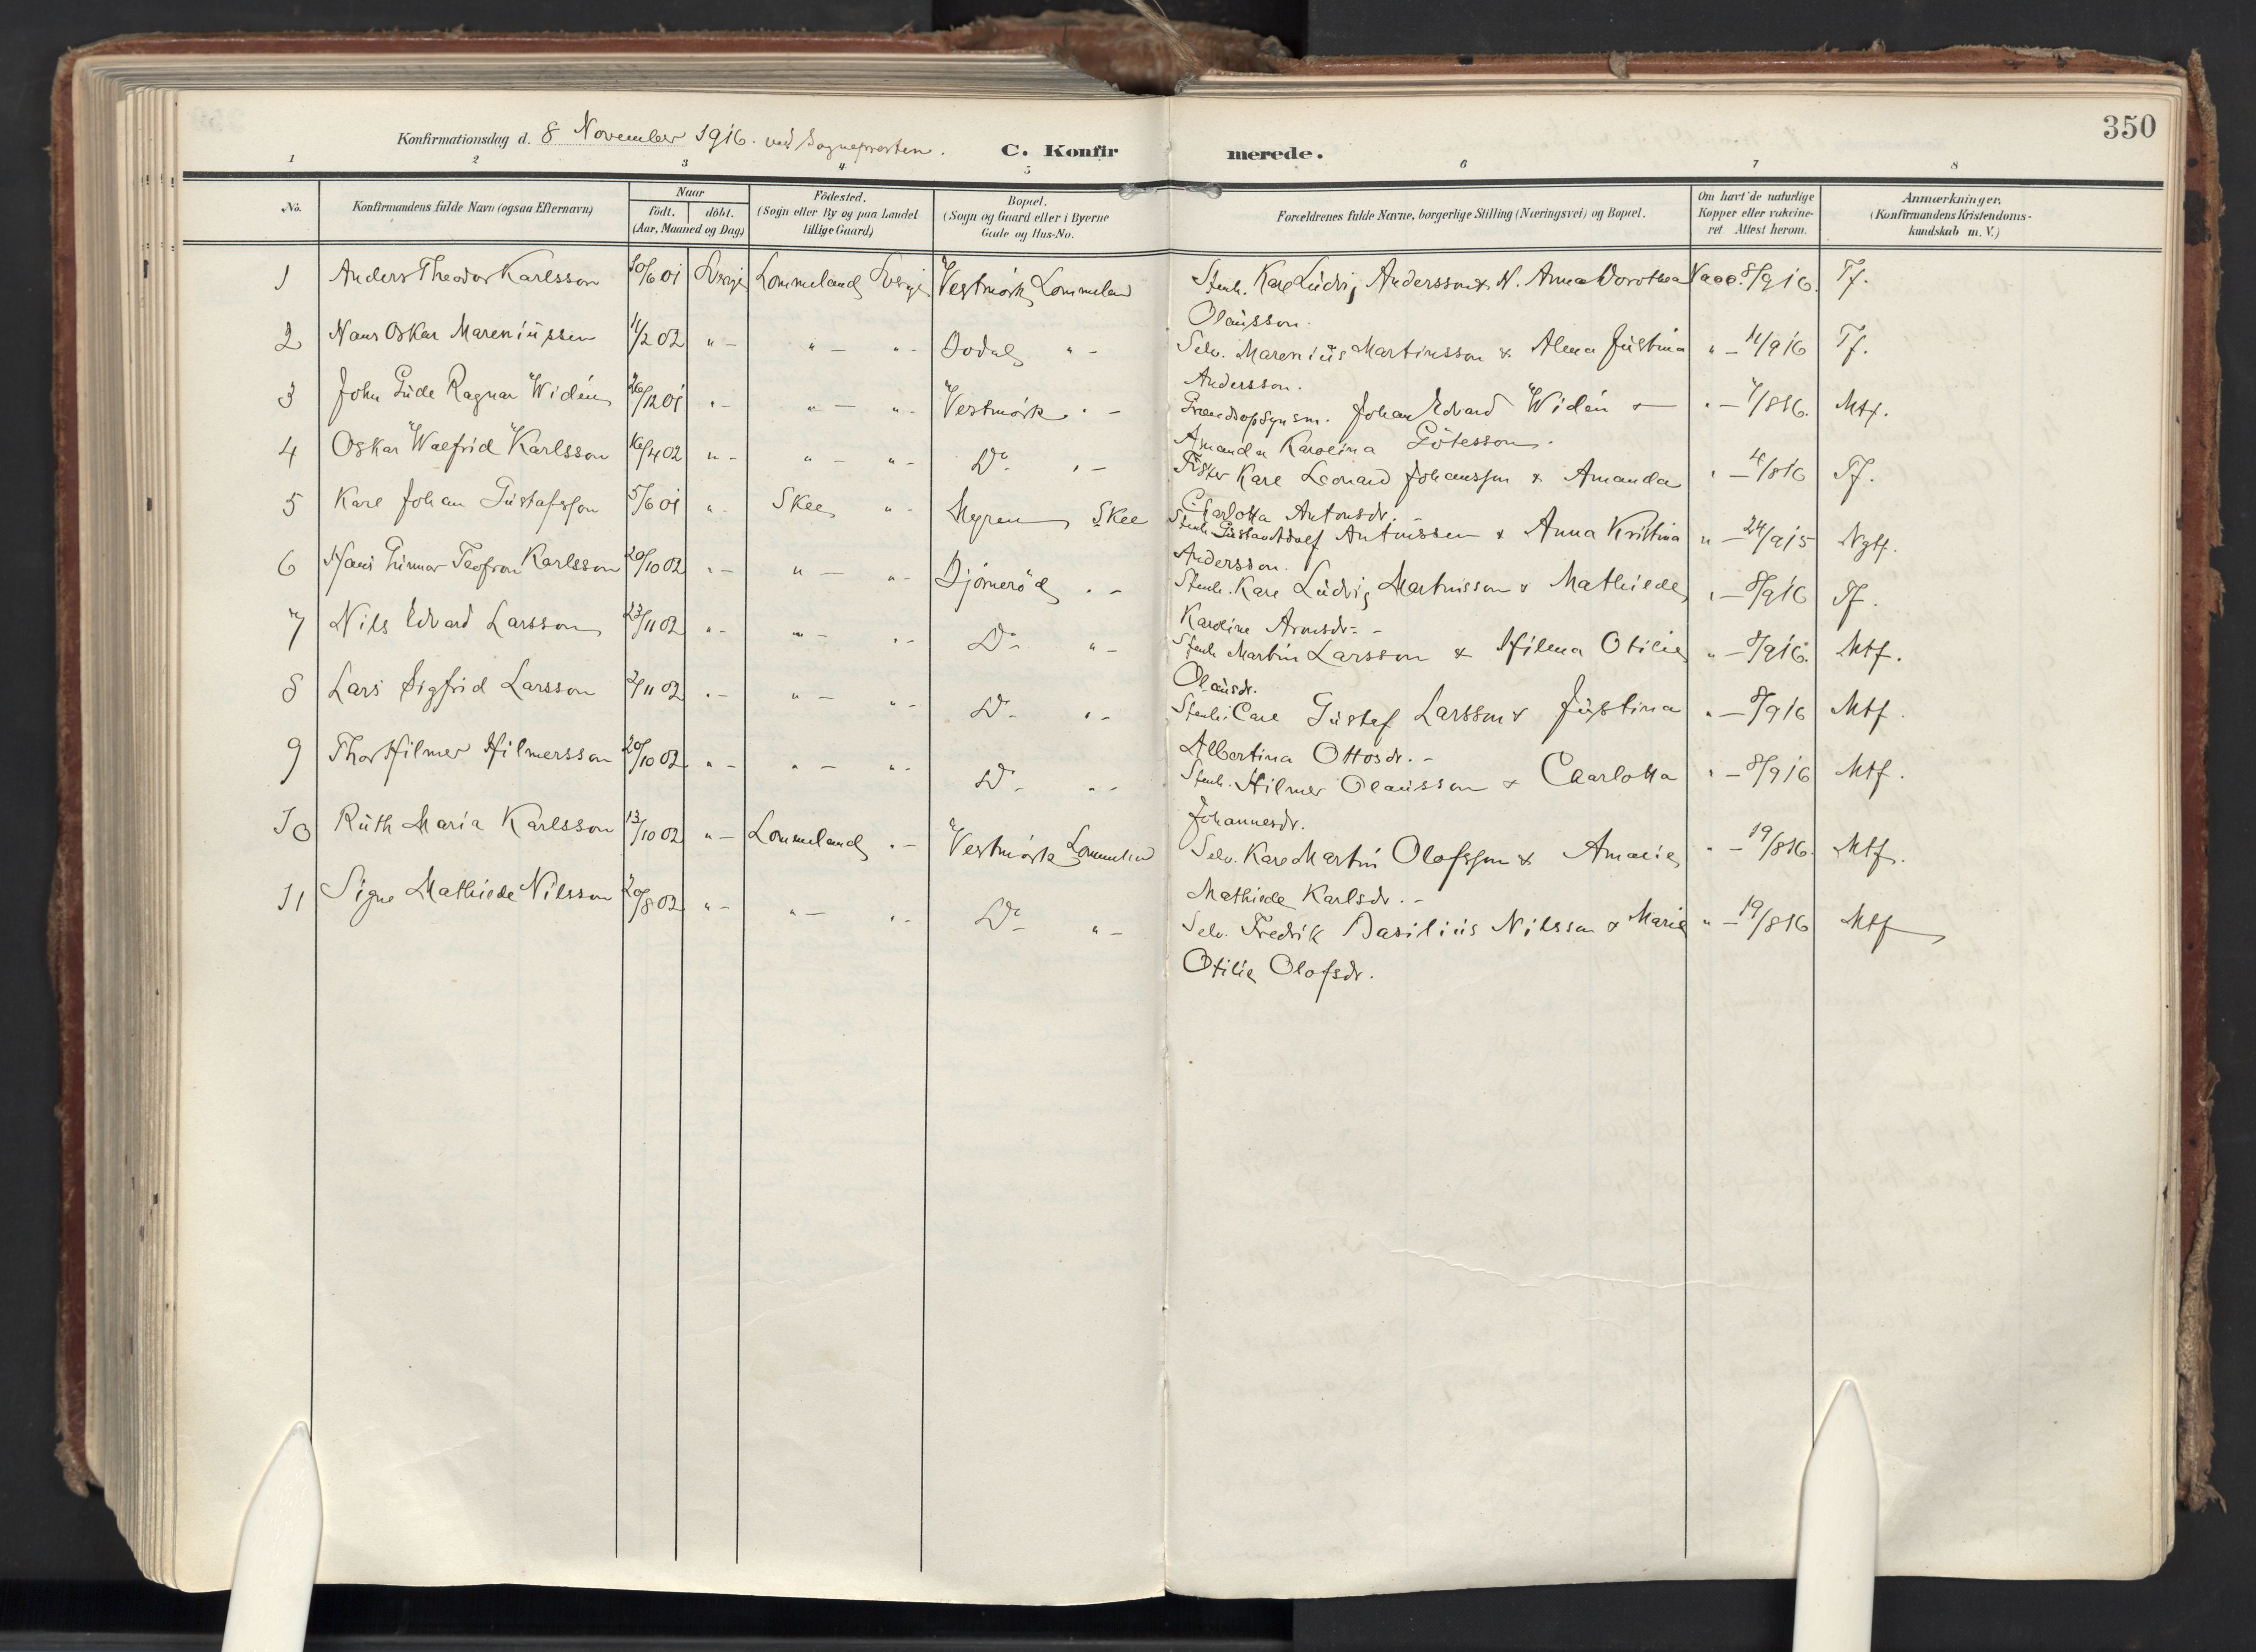 350
Konfirmationsdag d. 8 November 1916. ved Sognepresten.
C. Konfirmerede.
1 2 3 4 5 6 7 8
No.
Konfirmandens fulde Navn (ogsaa Efternavn)
Naar
födt. döbt.
(Aar, Maaned og Dag)
Födested.
(Sogn eller By og paa Landet
tillige Gaard)
Bopæl.
(Sogn og Gaard eller i Byerne
Gade og Hus-No.
Forældrenes fulde Navne, borgerlige Stilling (Næringsvei) og Bopæl.
Om havt de naturlige
Kopper eller vakcine-
ret Attest herom.
Anmærkninger.
(Konfirmandens Kristendoms-
kundskab m. V.)
1 Anders Theodor Karlsson 10/6 01 Sverge Lommeland Sverge Vestmörk, Lommeland Stenh. Karl Ludvig Andersson & H. Anna Dorothea Vacc. 8/9 16. Tf.
Olausson.
2 Hans Oskar Mareniussen 11/2 02 " - " - " - " - Selv. Marenius Martinsson & Alma Justina " - 11/9 16 Tf.
Andersson.
3 John Gude Ragnar Widén 26/12 01 " - " - " - Vestmörk " - Grændsopsynsm. Johan Edvard Widén & " - 7/8 16. Mtf.
Amanda Karolina Götesson.
4 Oskar Walfrid Karlsson 16/4 02 " - " - " - Do " - Fisker Karl Leonard Johansson & Amanda " - 4/8 16 Tf.
Charlotta Antonsdr. -
5 Karl Johan Gustafsson 5/6 01 " - Skee " - Myren, Skee Stenh. Gustav Adolf Antonssen & Anna Kristina " - 24/9 15 Ngtf.
Andersson.
6 Hans Gunnar Teofron Karlsson 20/10 02 " - " - " - Björneröd " - Stenh. Karl Ludvig Martinsson & Mathilde " - 8/9 16 Tf.
Karoline Aronsdr. -
7 Nils Edvard Larsson 23/11 02 " - " - " - Do " - Stenh. Martin Larsson & Hilma Otilie " - 8/9 16. Mtf.
Olausdr.
8 Lars Sigfrid Larsson 2/11 02 " - " - " - Do " - Stenh. Carl Gustaf Larsson & Justina " - 8/9 16 Mtf.
Albertina Ottosdr. -
9 Thor Hilmer Hilmersson 20/10 02 " - " - " - Do " - Stenh. Hilmer Olausson & Charlotta " - 8/9 16 Mtf.
Johannesdr.
10 Ruth Maria Karlsson 13/10 02 " - Lommeland " - Vestmörk Lommeland Selv. Karl Martin Olofsson & Amalie " - 19/8 16. Mtf.
Mathilde Karlsdr. -
11 Signe Mathilde Nilsson 20/8 02 " - " - " - Do " - Selv. Fredrik Basilius Nilsson & Marie " - 19/8 16 Mtf
Otilie Olofsdr.